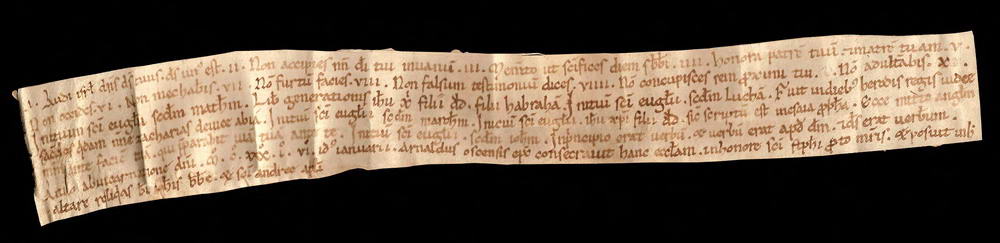 I. Audi isrl dns ds tuus. ds un' est. II. Non accipies nm di tui inuanu. III. Mento ut scifices diem sbbi. IIII. honora patre tuu. & matre tuam. V.
Non occides. VI. Non mechabis. VII. Non furtu facies. VIII. Non falsum testimoniu dices. VIIII. Non concupisces rem proximi tui. X. No adultabis. X
Initium sci eugli sedm mathm. Lib generationis ihu xpi filii dd. filii habraha. Initiu sci eugli. sedm lucha. Fuit indieb' herodis regis iudee
sacdos zacharias deuice abia. Initiu sci eugli sedm marchm. Iniciu sci eugli. ihu xpi filii di. sic scriptu est inesaia ppha. Ecce mitto anglm
mm ante facie tua qui pparabit uia tua ante te. Initiu sci eugli. sedm iohm. Inpncipio erat uerbu. & uerbu erat apd dm. & ds erat uerbum.
Anno abincarnatione dni. M. C. XXX. VI. id' ianuarii. Arnaldus oscensis eps consecrauit hanc ecclam. inhonore sci stphi pto miris. & posuit inh
altare reliqas bbe. & sci andree apli